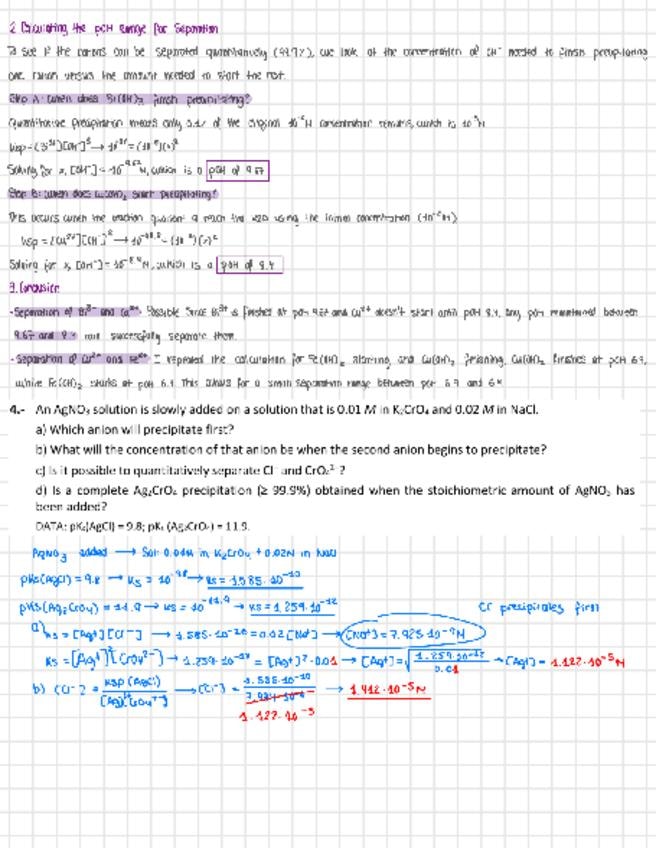 2. Calculating the pOH Range for Separation
To see if the cations can be separated quantitatively (99.9%), we look at the concentration of OH⁻ needed to finish precipitating
one cation versus the amount needed to start the next.
Step A: When does Bi(OH)₃ finish precipitating?
Quantitative precipitation means only 0.1% of the original 10⁻²M concentration remains, which is 10⁻⁵M
Solving for x, [OH⁻] = 10⁻⁹·⁶⁷M, which is a pOH of 9.67
Step B: When does Cu(OH)₂ start precipitating?
This occurs when the reaction quotient Q reach the using the initial concentration (10⁻²M)
Solving for x, [OH⁻] = 10⁻⁸·⁴M, which is a pOH of 8.4
3. Conclusion
·Separation of Bi³⁺ and Cu²⁺: Possible since Bi³⁺ is finished at pOH 9.67 and Cu²⁺ doesn't start until pOH 8.4, any pOH maintained between
9.67 and will successfully separate them.
·Separation of Cu²⁺ and I repeated the calculation for Fe(OH)₂ starting, and Cu(OH)₂ finishing. Cu(OH)₂ finishes at pOH 6.9,
while Fe(OH)₂ starts at pOH 6.4. This allows for a small separation range between pOH 6.9 and
4.- An AgNO₃ solution is slowly added on a solution that is 0.01 M in K₂CrO₄ and 0.02 M in NaCl.
a) Which anion will precipitate first?
b) What will the concentration of that anion be when the second anion begins to precipitate?
c) Is it possible to quantitatively separate Cl⁻ and CrO₄²⁻?
d) Is a complete Ag₂CrO₄ precipitation (≥ 99.9%) obtained when the stoichiometric amount of AgNO₃ has
been added?
DATA: pKₛ(AgCl) = 9.8; pKₛ (Ag₂CrO₄) = 11.9.
AgNO₃ added → Sol: 0.01M in K₂CrO₄ + 0.02M in NaCl
pKs(AgCl) = 9.8 → Ks = 10⁻⁹·⁸ → Ks = 1.585·10⁻¹⁰
pKs(Ag₂CrO₄) = 11.9 → Ks = 10⁻¹¹·⁹ → Ks = 1.259·10⁻¹² Cl⁻ precipitates first
a) Ks = [Ag⁺][Cl⁻] → 1.585·10⁻¹⁰ = 0.02 → = 7.925·10⁻⁹M
Ks = [Ag⁺]²[CrO₄²⁻] → 1.259·10⁻¹² = [Ag⁺]²·0.01 → [Ag⁺] = √(1.259·10⁻¹²/0.01) → [Ag⁺] = 1.122·10⁻⁵M
b) [Cl⁻] = Ksp(AgCl)/ → [Cl⁻] = 1.585·10⁻¹⁰/ → 1.412·10⁻⁵M
1.122·10⁻⁵